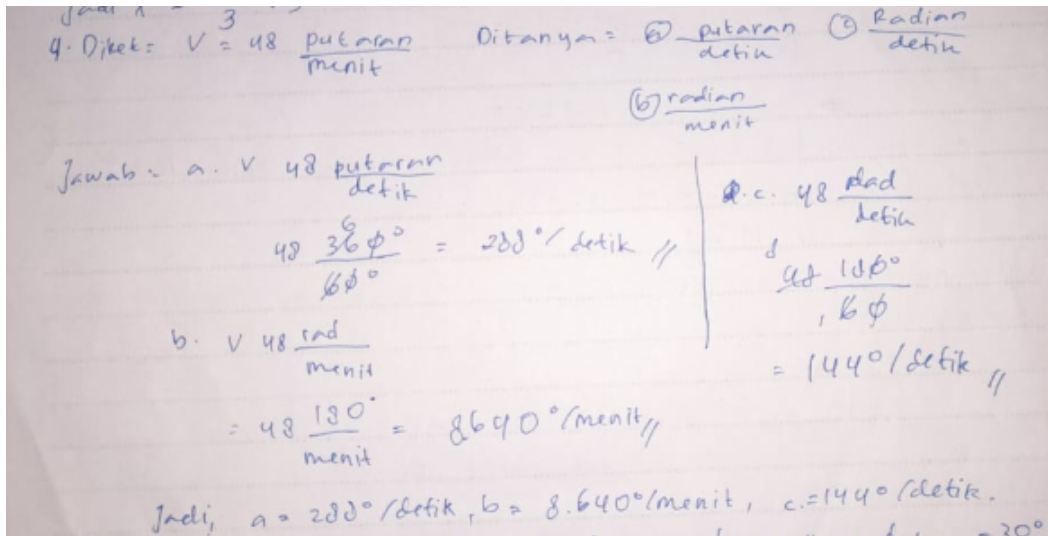 Jadi x = 3
4. Diket = V = 48 putaran/menit Ditanya = (a) putaran/detik (c) Radian/detik
(b) radian/menit
Jawab = a. V 48 putaran/detik
48 360°/60° = 288°/detik //
b. V 48 rad/menit
= 48 180°/menit = 8640°/menit //
c. 48 Rad/detik
48 180°/60
= 144°/detik //
Jadi, a = 288°/detik, b = 8.640°/menit, c. = 144°/detik.
= 30°